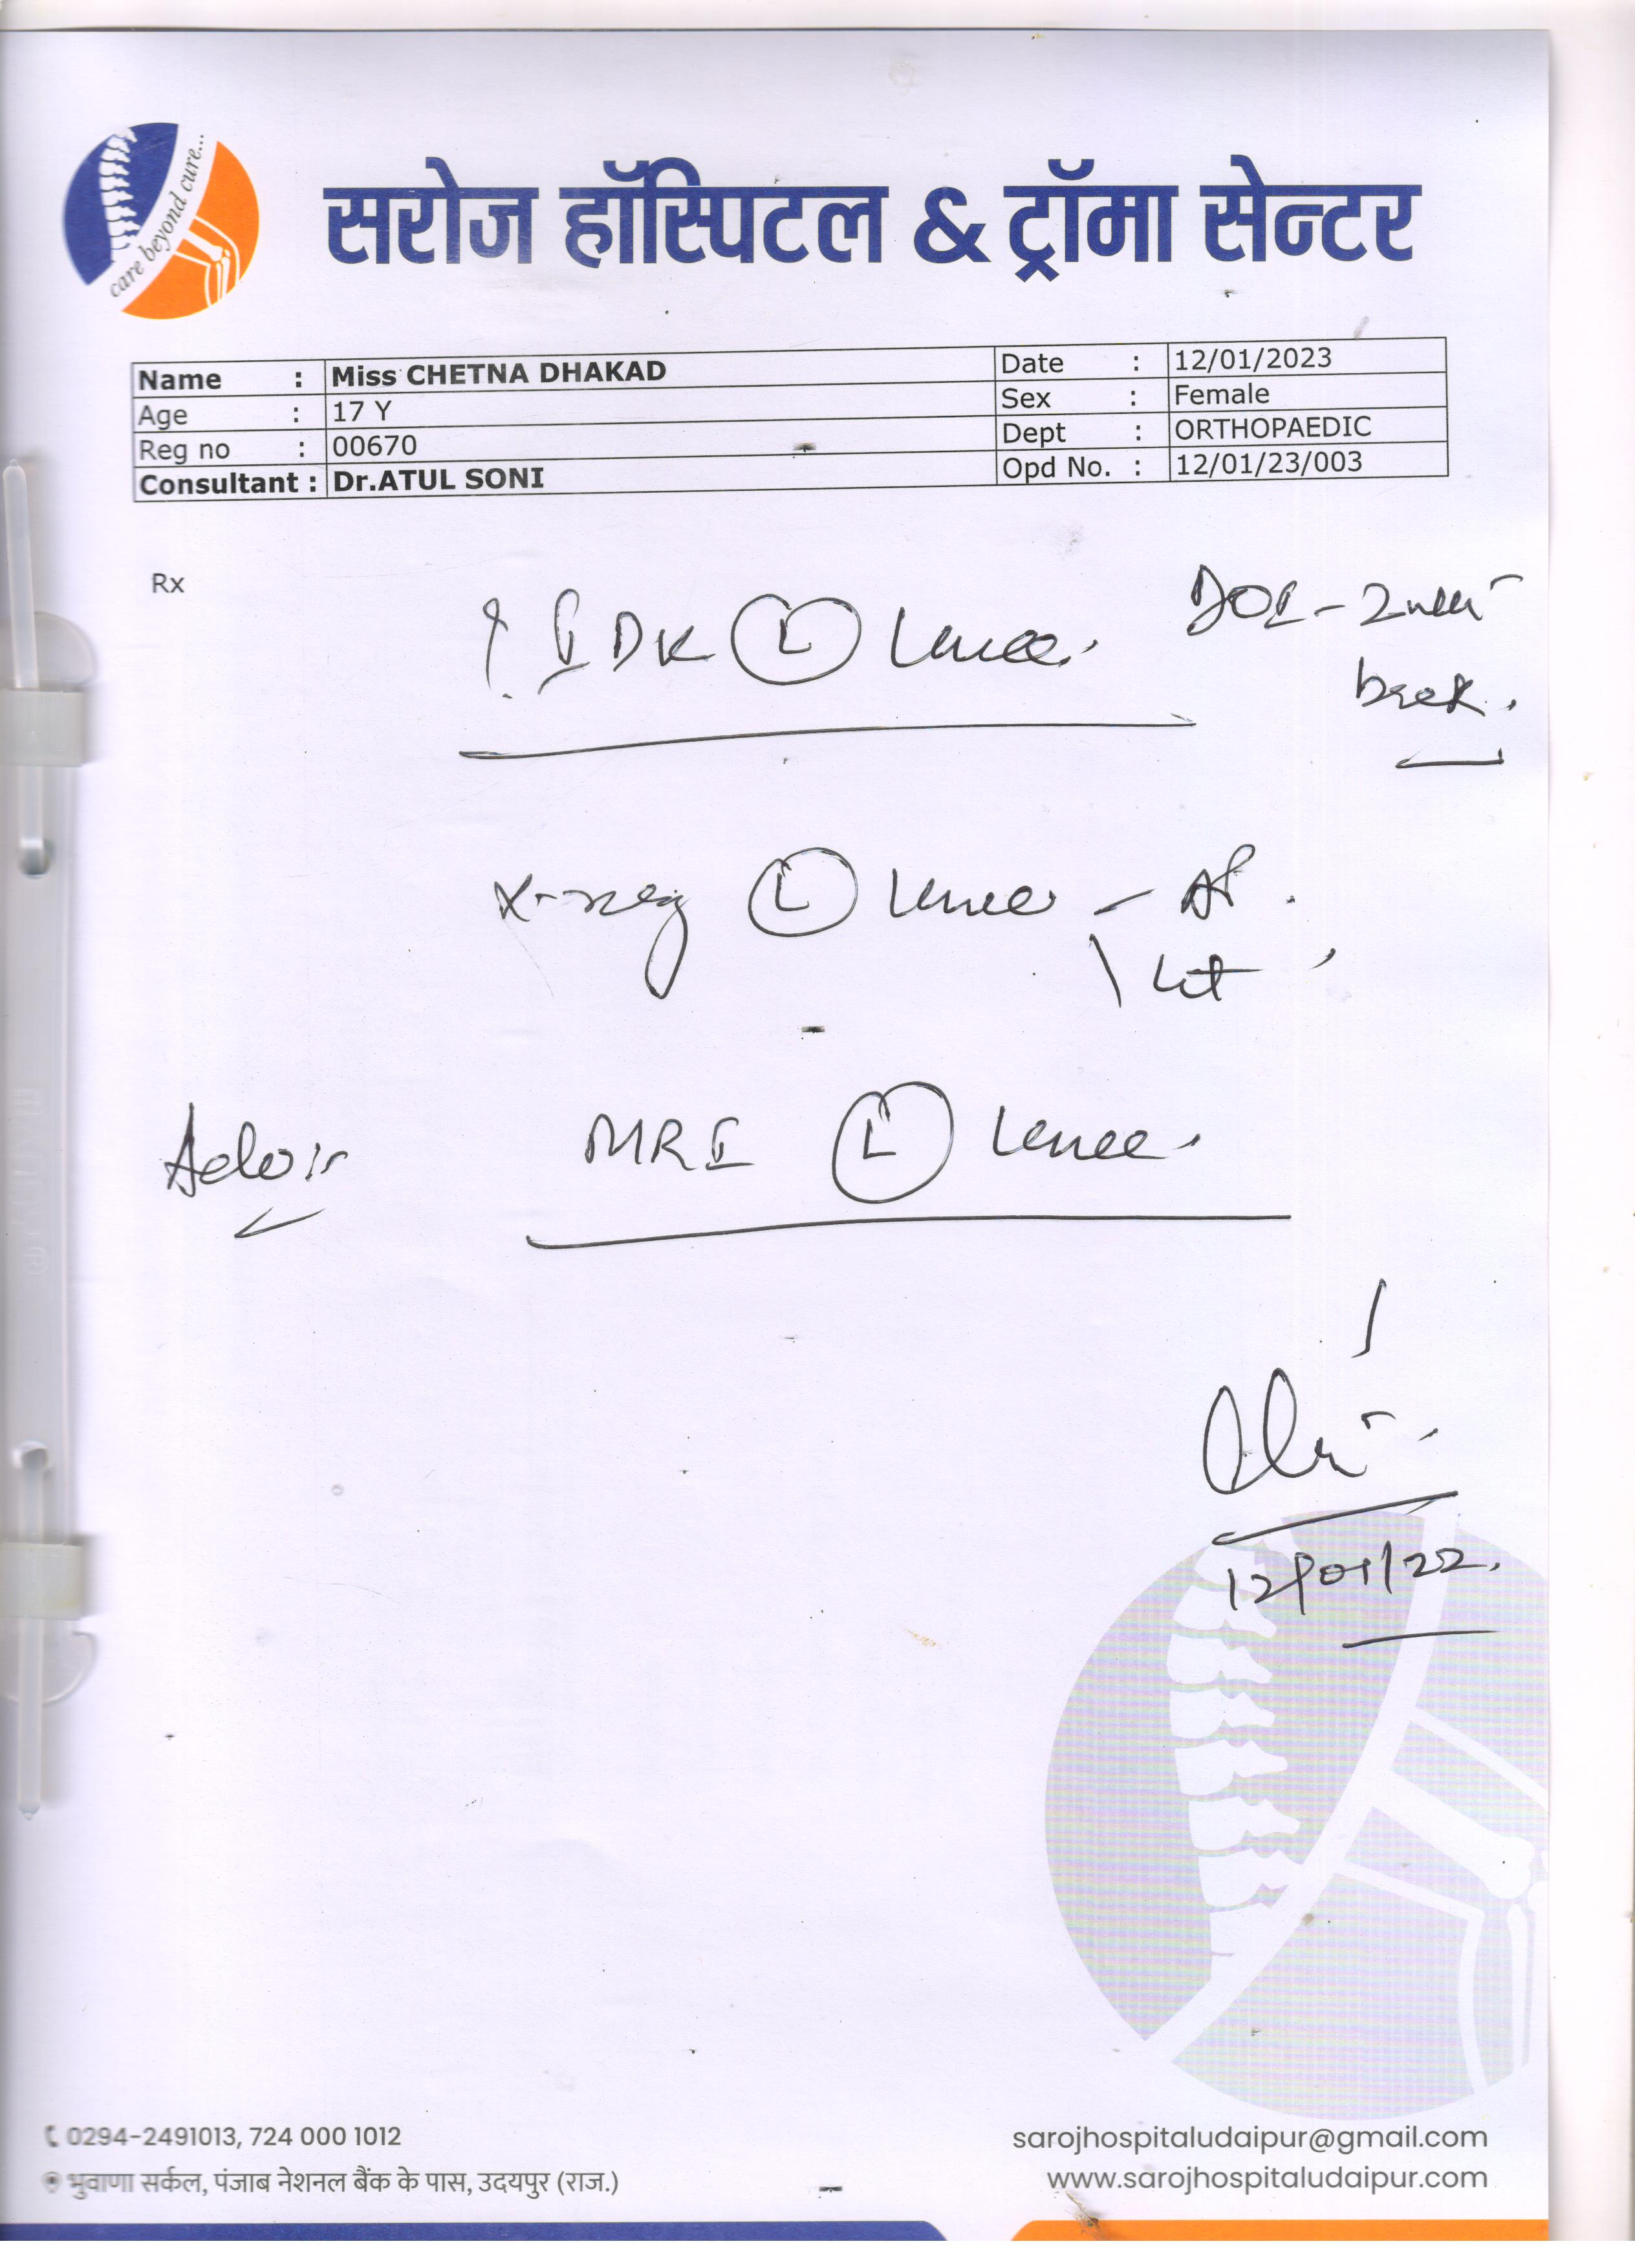 care beyond cure...
सरोज हॉस्पिटल & ट्रॉमा सेन्टर
Name : Miss CHETNA DHAKAD Date : 12/01/2023
Age : 17 Y Sex : Female
Reg no : 00670 Dept : ORTHOPAEDIC
Consultant : Dr.ATUL SONI Opd No. : 12/01/23/003
Rx
? IDK (L) knee. DOI - 2 week
back.
X-ray (L) knee - AP.
Lat
Advis MRI (L) knee.
12/01/22.
0294-2491013, 724 000 1012 sarojhospitaludaipur@gmail.com
भुवाणा सर्कल, पंजाब नेशनल बैंक के पास, उदयपुर (राज.) www.sarojhospitaludaipur.com